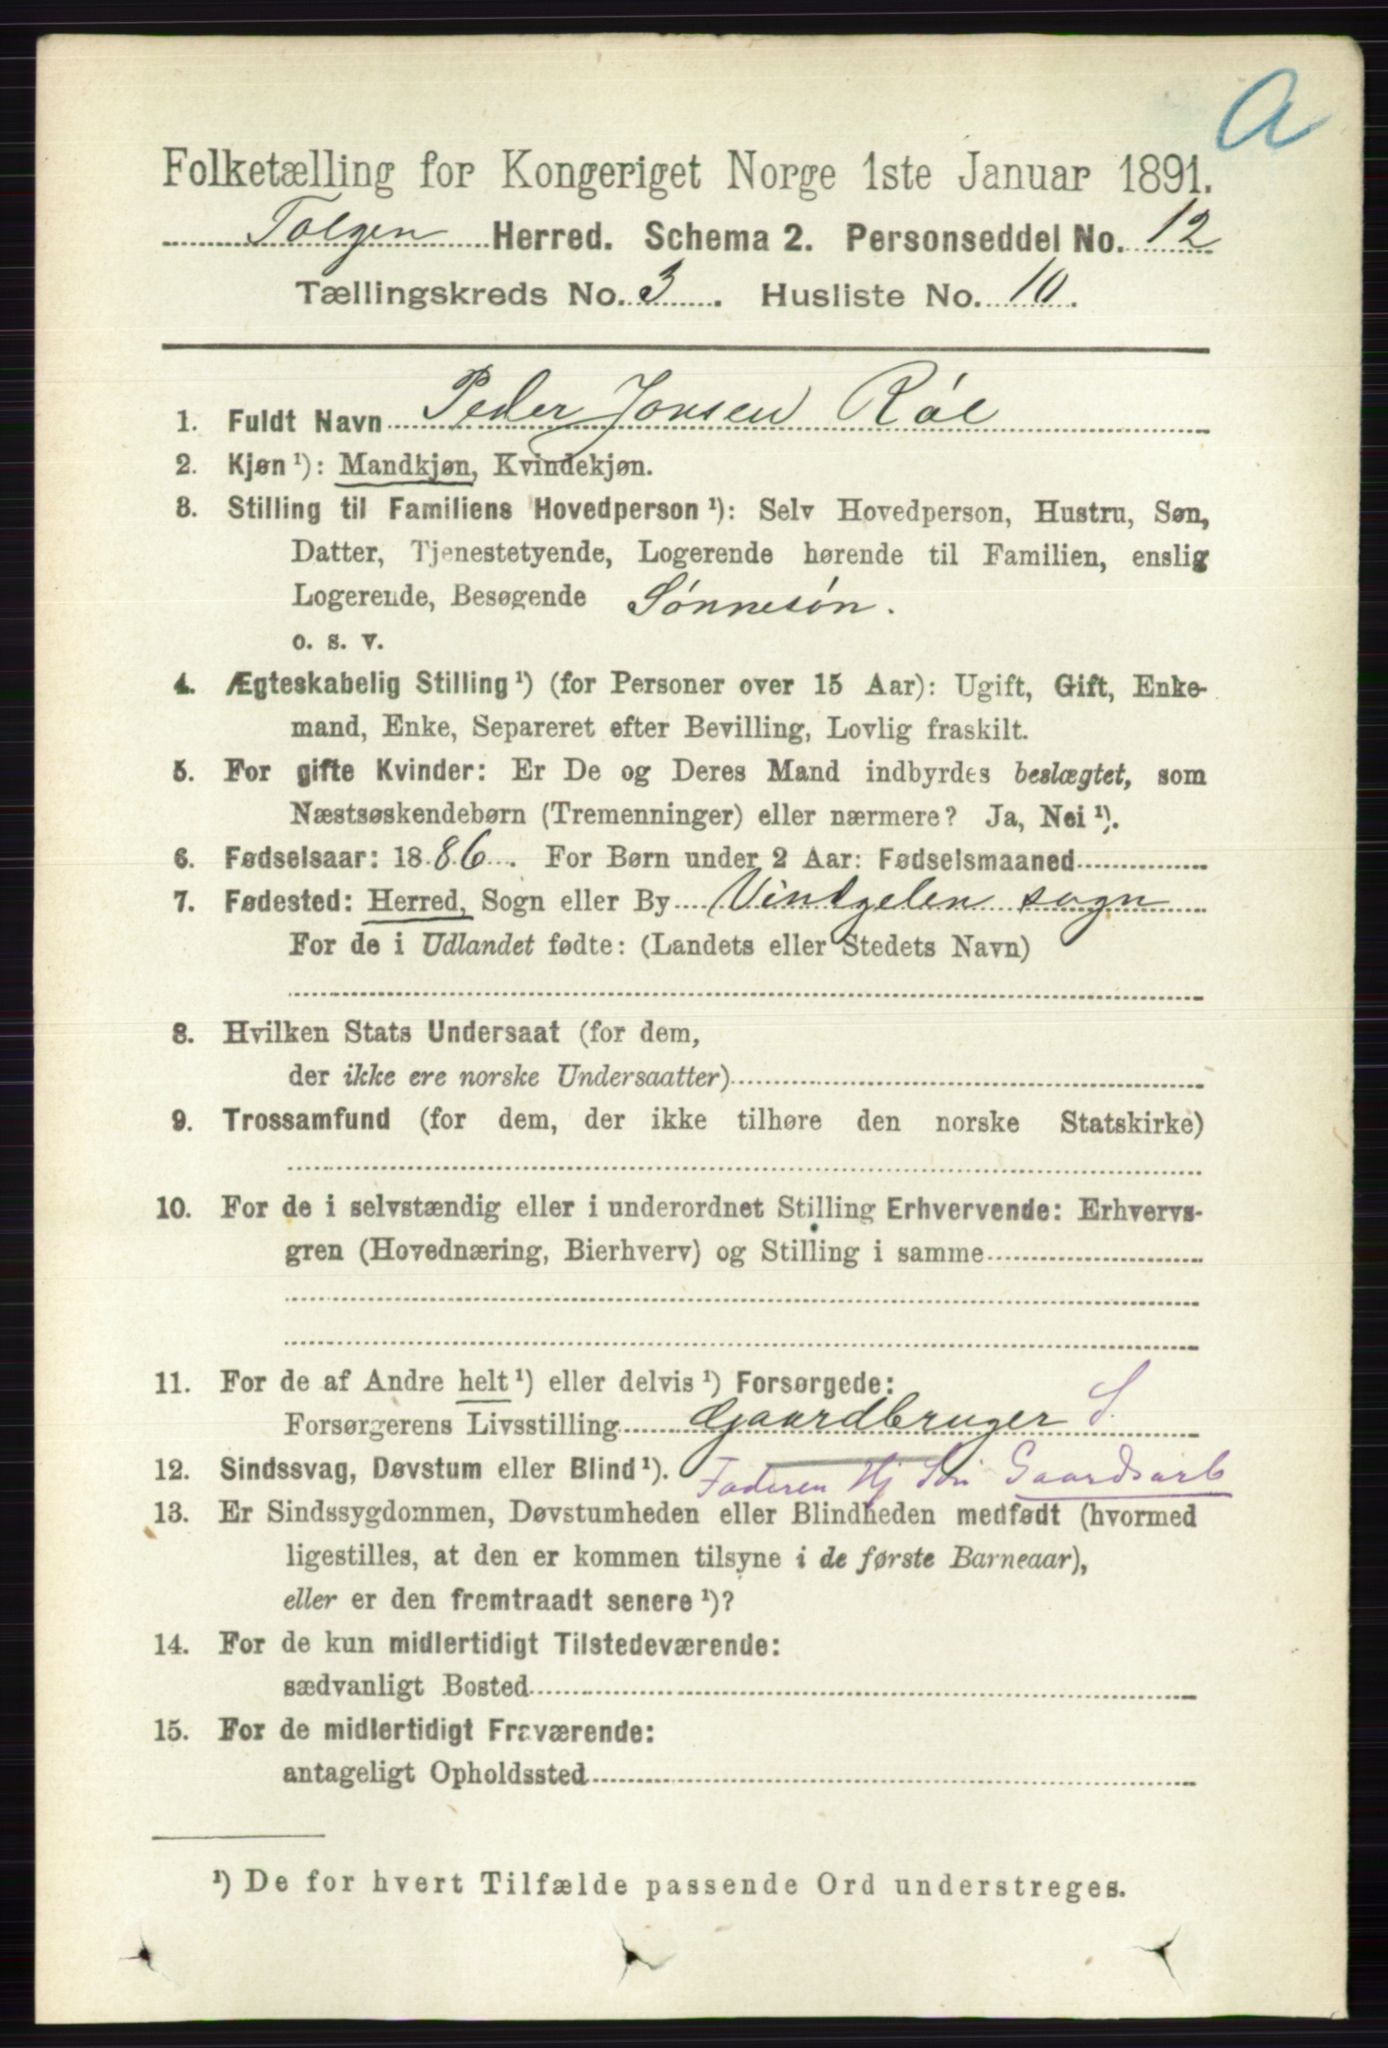 A
Folketælling for Kongeriget Norge 1ste Januar 1891.
Tolgen Herred. Schema 2. Personseddel No. 12
Tællingskreds No. 3. Husliste No. 10.
1. Fuldt Navn Peder Jonsen Røe
2. Kjøn ¹): Mandkjøn, Kvindekjøn.
3. Stilling til Familiens Hovedperson ¹): Selv Hovedperson, Hustru, Søn,
Datter, Tjenestetyende, Logerende hørende til Familien, enslig
Logerende, Besøgende Sønnesøn.
o. s. v.
4. Ægteskabelig Stilling ¹) (for Personer over 15 Aar): Ugift, Gift, Enke-
mand, Enke, Separeret efter Bevilling, Lovlig fraskilt.
5. For gifte Kvinder: Er De og Deres Mand indbyrdes beslægtet, som
Næstsøskendebørn (Tremenninger) eller nærmere? Ja, Nei ¹).
6. Fødselsaar: 1886. For Børn under 2 Aar: Fødselsmaaned
7. Fødested: Herred, Sogn eller By Vindgelen sogn
For de i Udlandet fødte: (Landets eller Stedets Navn)
8. Hvilken Stats Undersaat (for dem,
der ikke ere norske Undersaatter)
9. Trossamfund (for dem, der ikke tilhøre den norske Statskirke)
10. For de i selvstændig eller i underordnet Stilling Erhvervende: Erhvervs-
gren (Hovednæring, Bierhverv) og Stilling i samme
11. For de af Andre helt ¹) eller delvis ¹) Forsørgede:
Forsørgerens Livsstilling Gaardbruger S.
12. Sindssvag, Døvstum eller Blind ¹). Faderen Hj Søn Gaardsarb
13. Er Sindssygdommen, Døvstumheden eller Blindheden medfødt (hvormed
ligestilles, at den er kommen tilsyne i de første Barneaar),
eller er den fremtraadt senere ¹)?
14. For de kun midlertidigt Tilstedeværende:
sædvanligt Bosted
15. For de midlertidigt Fraværende:
antageligt Opholdssted
¹) De for hvert Tilfælde passende Ord understreges.